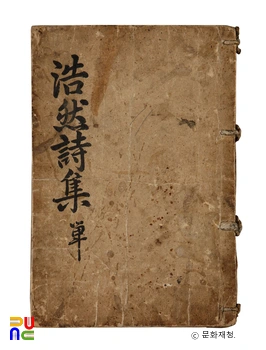 浩然詩集 單
PUNC
© 문화재청.